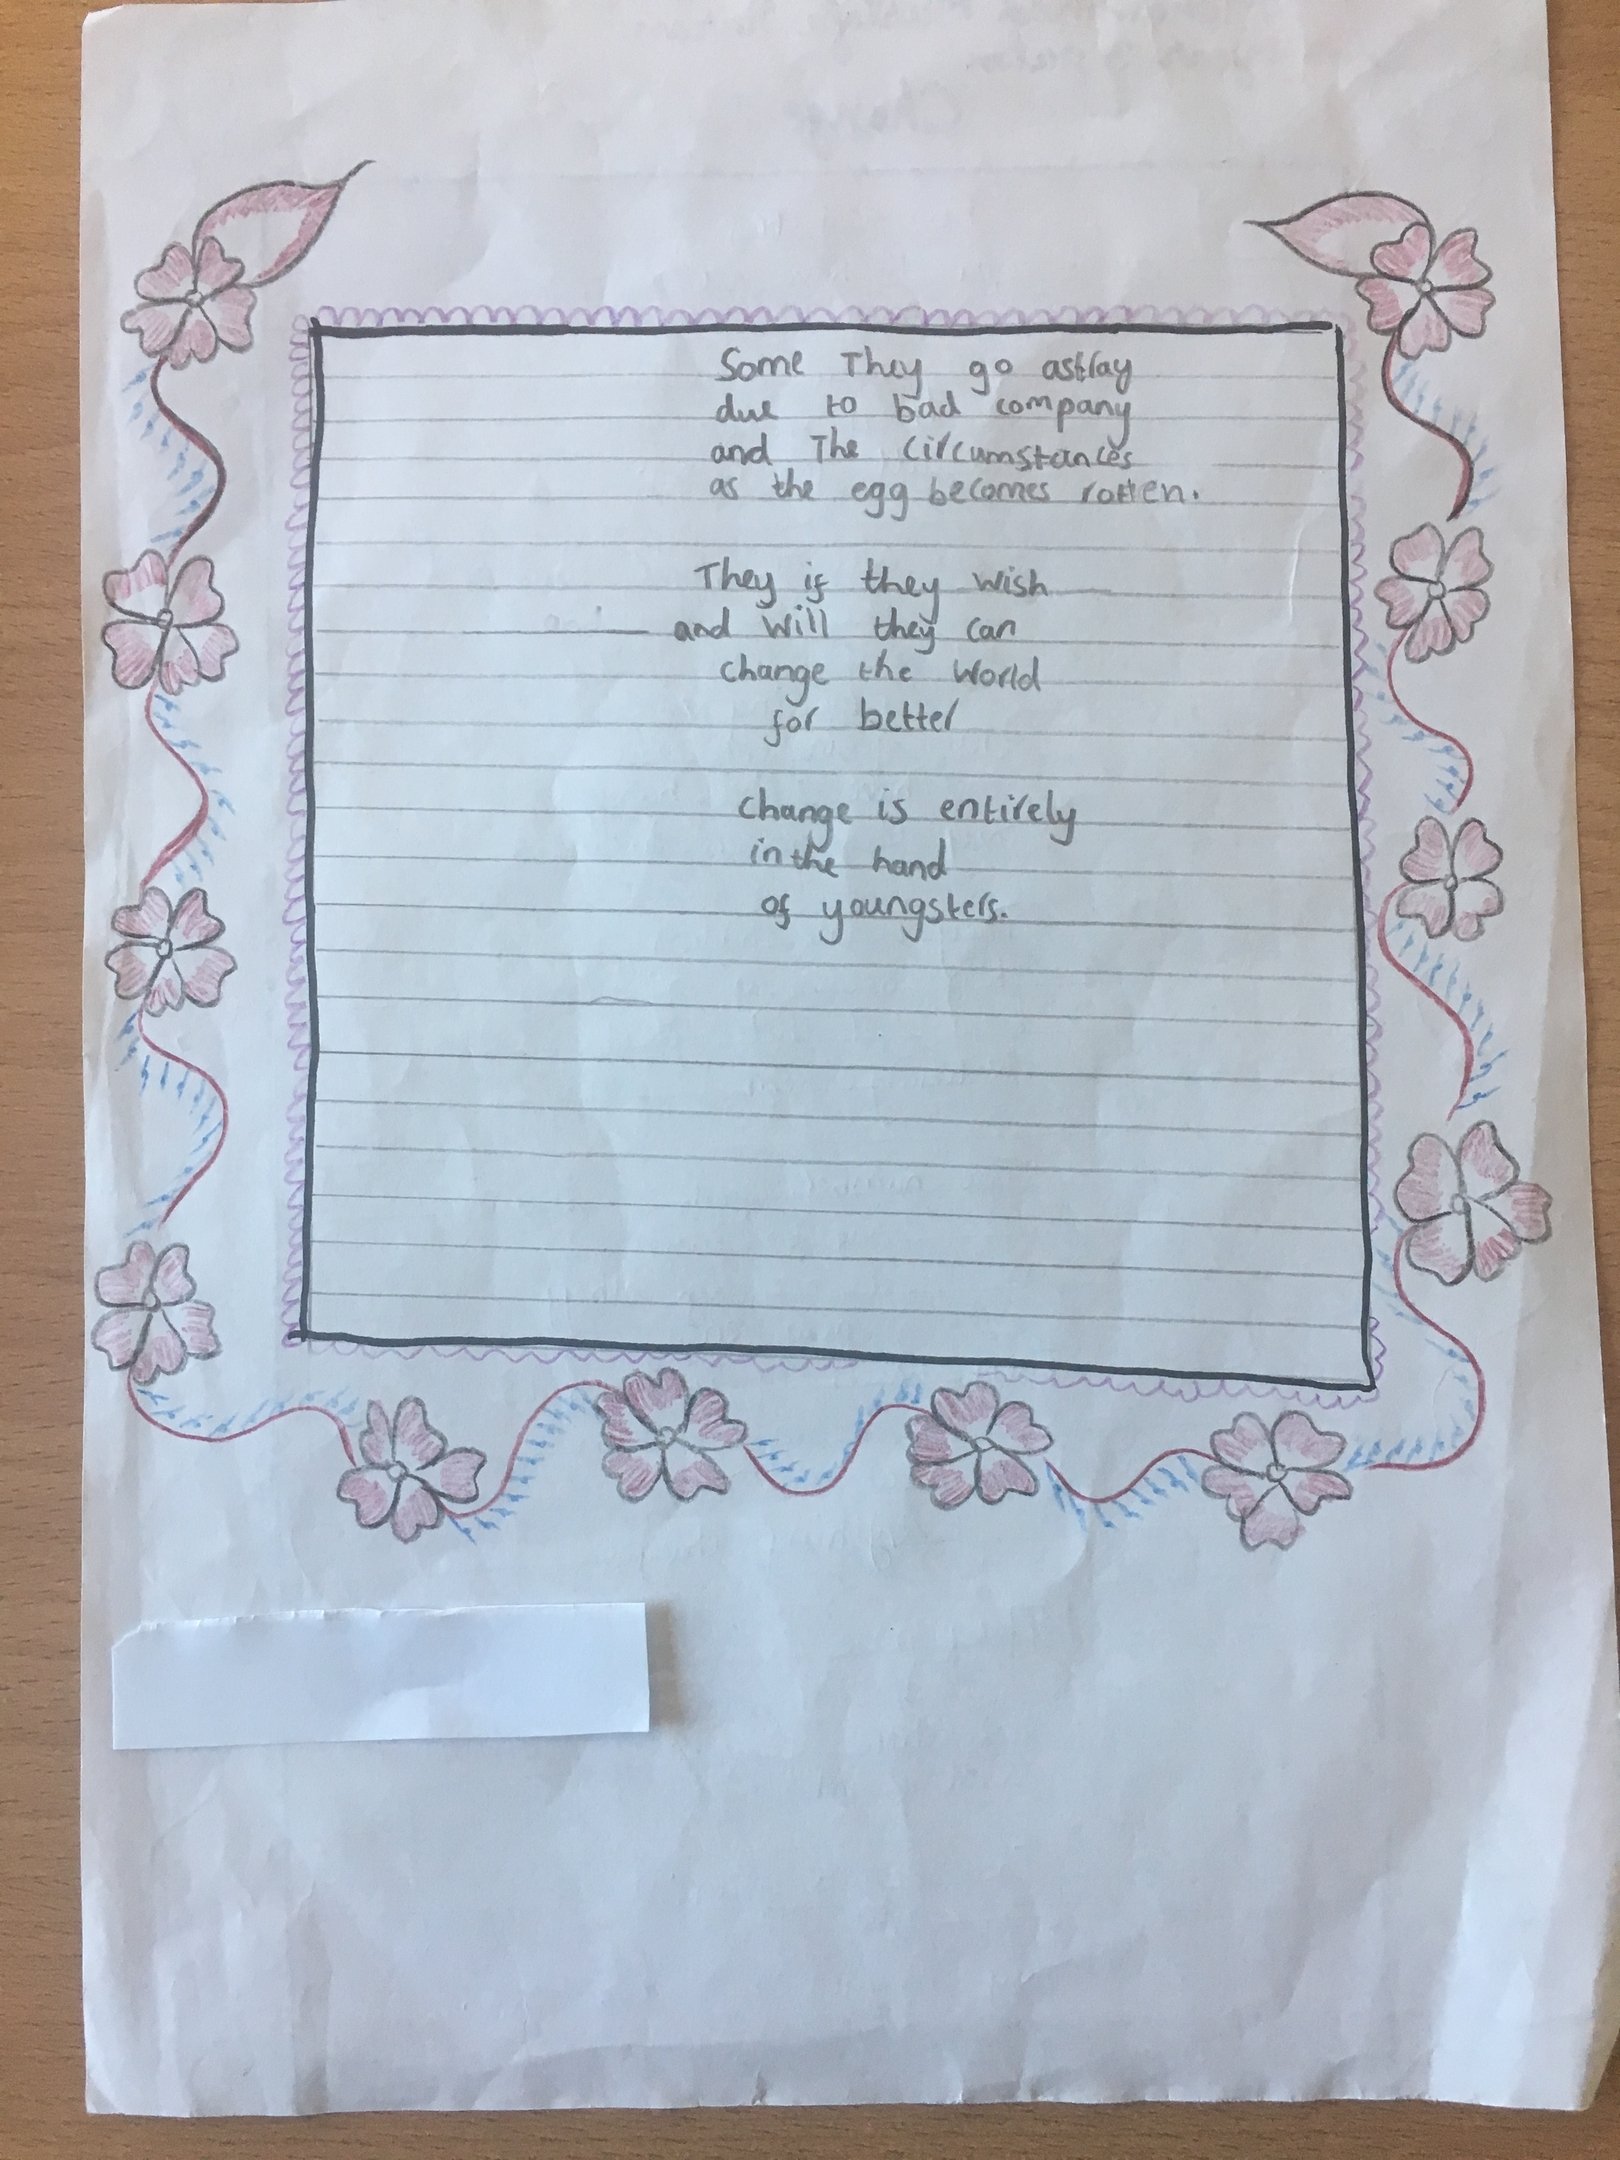 Some They go astray
due to bad company
and The circumstances
as the egg becomes rotten.
They if they wish
and will they can
change the world
for better
Change is entirely
in the hand
of youngsters.